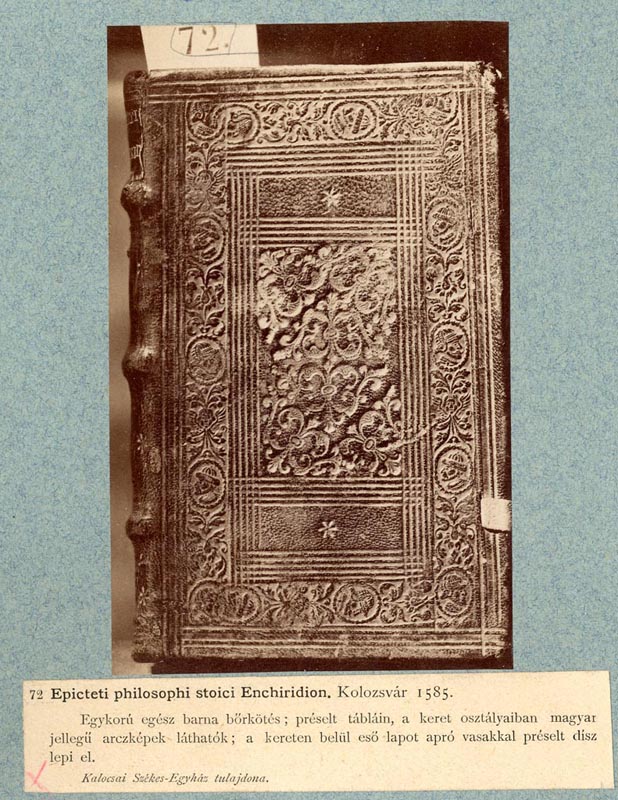 72.
72 Epicteti philosophi stoici Enchiridion. Kolozsvár 1585.
Egykorú egész barna bőrkötés; préselt tábláin, a keret osztályaiban magyar
jellegű arczképek láthatók; a kereten belül eső lapot apró vasakkal préselt dísz
lepi el.
Kalocsai Székes-Egyház tulajdona.